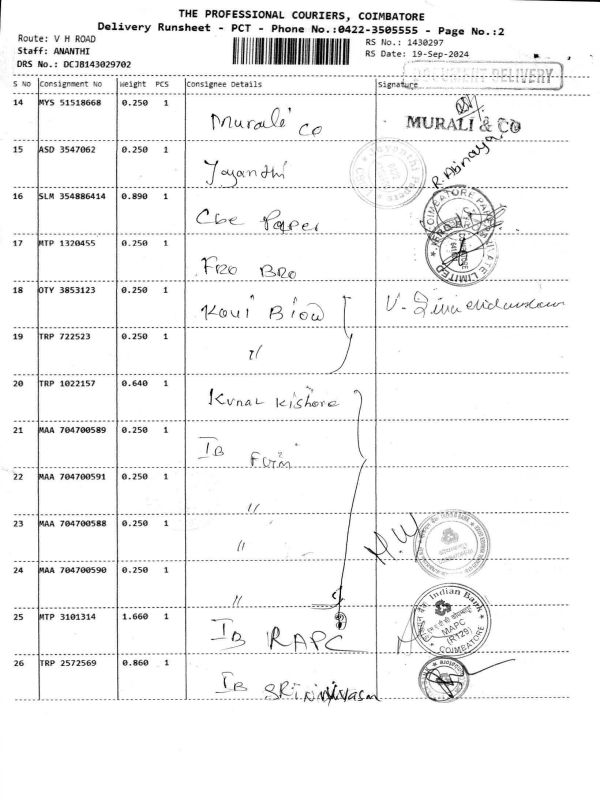 THE PROFESSIONAL COURIERS, COIMBATORE
Delivery Runsheet - PCT - Phone No.:0422-3505555 - Page No.:2
Route: V H ROAD
RS No.: 1430297
Staff: ANANTHI
RS Date: 19-Sep-2024
DRS No.: DCJB143029702
DOCUMENT DELIVERY
S No Consignment No Weight PCS Consignee Details Signature
14 MYS 51518668 0.250 1 Murali Co MURALI & CO
15 ASD 3547062 0.250 1 Jayanthi R. Abinaya
16 SLM 354886414 0.890 1 Cbe Paper
17 MTP 1320455 0.250 1 Fro Bro
18 OTY 3853123 0.250 1
19 TRP 722523 0.250 1 "
20 TRP 1022157 0.640 1 Kunal Kishore
21 MAA 704700589 0.250 1 IB
22 MAA 704700591 0.250 1 "
23 MAA 704700588 0.250 1 "
24 MAA 704700590 0.250 1 "
25 MTP 3101314 1.660 1 IB RAPC Indian Bank MAPC COIMBATORE
26 TRP 2572569 0.860 1 IB Srinivasan